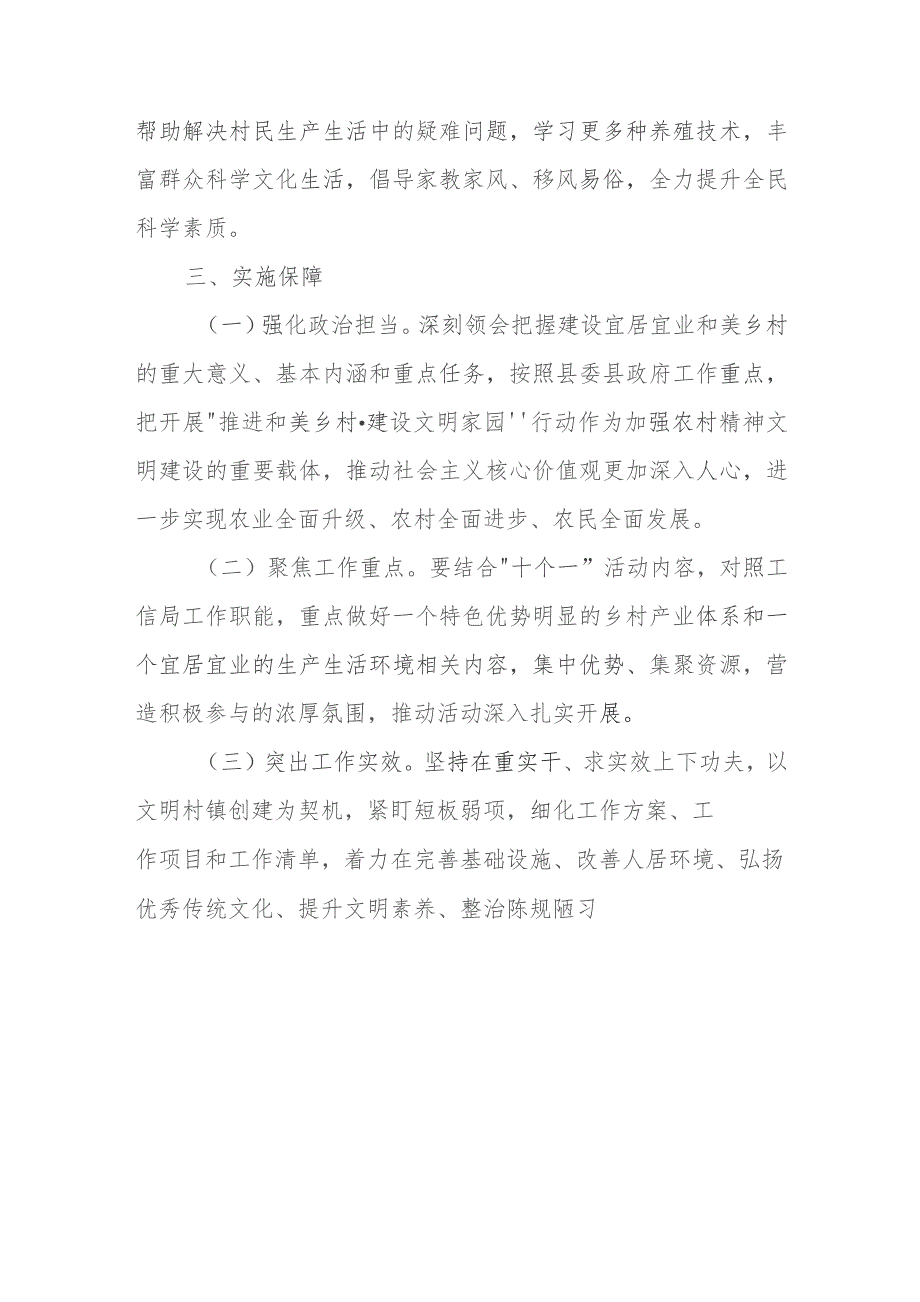 帮助解决村民生产生活中的疑难问题，学习更多种养殖技术，丰
富群众科学文化生活，倡导家教家风、移风易俗，全力提升全民
科学素质。
三、实施保障
（一）强化政治担当。深刻领会把握建设宜居宜业和美乡村
的重大意义、基本内涵和重点任务，按照县委县政府工作重点，
把开展"推进和美乡村•建设文明家园''行动作为加强农村精神文
明建设的重要载体，推动社会主义核心价值观更加深入人心，进
一步实现农业全面升级、农村全面进步、农民全面发展。
（二）聚焦工作重点。要结合"十个一”活动内容，对照工
信局工作职能，重点做好一个特色优势明显的乡村产业体系和一
个宜居宜业的生产生活环境相关内容，集中优势、集聚资源，营
造积极参与的浓厚氛围，推动活动深入扎实开展。
（三）突出工作实效。坚持在重实干、求实效上下功夫，以
文明村镇创建为契机，紧盯短板弱项，细化工作方案、工
作项目和工作清单，着力在完善基础设施、改善人居环境、弘扬
优秀传统文化、提升文明素养、整治陈规陋习